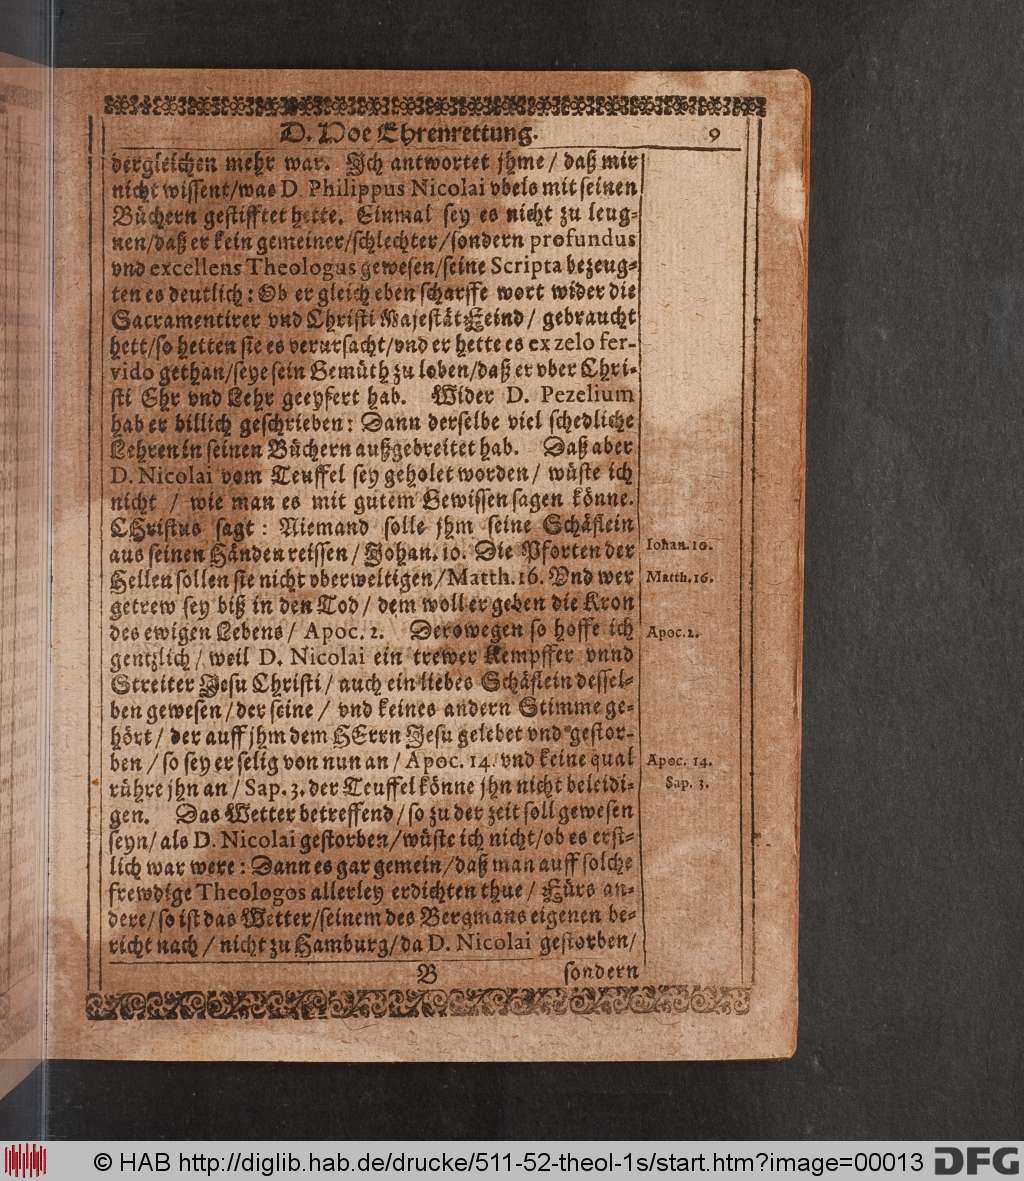 D. Hoe Ehrenrettung. 9
dergleichen mehr war. Ich antwortet jhme / daß mir
nicht wissent/was D Philippus Nicolai vbels mit seinen
Büchern gestifftet hette. Einmal sey es nicht zu leug-
nen/daß er kein gemeiner/schlechter/sondern profundus
vnd excellens Theologus gewesen/seine Scripta bezeug-
ten es deutlich: Ob er gleich eben scharffe wort wider die
Sacramentirer vnd Christi Majestät Feind / gebraucht
hett/so hetten sie es verursacht/vnd er hette es ex zelo fer-
vido gethan/seye sein Gemüth zu loben/daß er vber Chri-
sti Ehr vnd Lehr geeyfert hab. Wider D. Pezelium
hab er billich geschrieben: Dann derselbe viel schedliche
Lehren in seinen Büchern außgebreitet hab. Daß aber
D. Nicolai vom Teuffel sey geholet worden / wüste ich
nicht / wie man es mit gutem Gewissen sagen könne.
CHristus sagt: Niemand solle jhm seine Schäflein
aus seinen Händen reissen / Johan. 10. Die Pforten der
Hellen sollen sie nicht vberweltigen/Matth. 16. Vnd wer
getrew sey biß in den Tod / dem woll er geben die Kron
des ewigen Lebens / Apoc. 2. Derowegen so hoffe ich
gentzlich / weil D. Nicolai ein trewer Kempffer vnnd
Streiter Jesu Christi / auch ein liebes Schäflein dessel-
ben gewesen / der seine / vnd keines andern Stimme ge-
hört / der auff jhm dem HErrn Jesu gelebet vnd gestor-
ben / so sey er selig von nun an / Apoc. 14. vnd keine qual
rühre jhn an / Sap. 3. der Teuffel könne jhn nicht beleidi-
gen. Das Wetter betreffend / so zu der zeit soll gewesen
seyn/ als D. Nicolai gestorben/wüste ich nicht/ob es erst-
lich war were: Dann es gar gemein/daß man auff solche
frewdige Theologos allerley erdichten thue / Fürs an-
dere/so ist das Wetter/seinem des Bergmans eigenen be-
richt nach / nicht zu Hamburg/da D. Nicolai gestorben/
B sondern
Iohan. 10.
Matth. 16.
Apoc. 2.
Apoc. 14.
Sap. 3.
© HAB http://diglib.hab.de/drucke/511-52-theol-1s/start.htm?image=00013
DFG